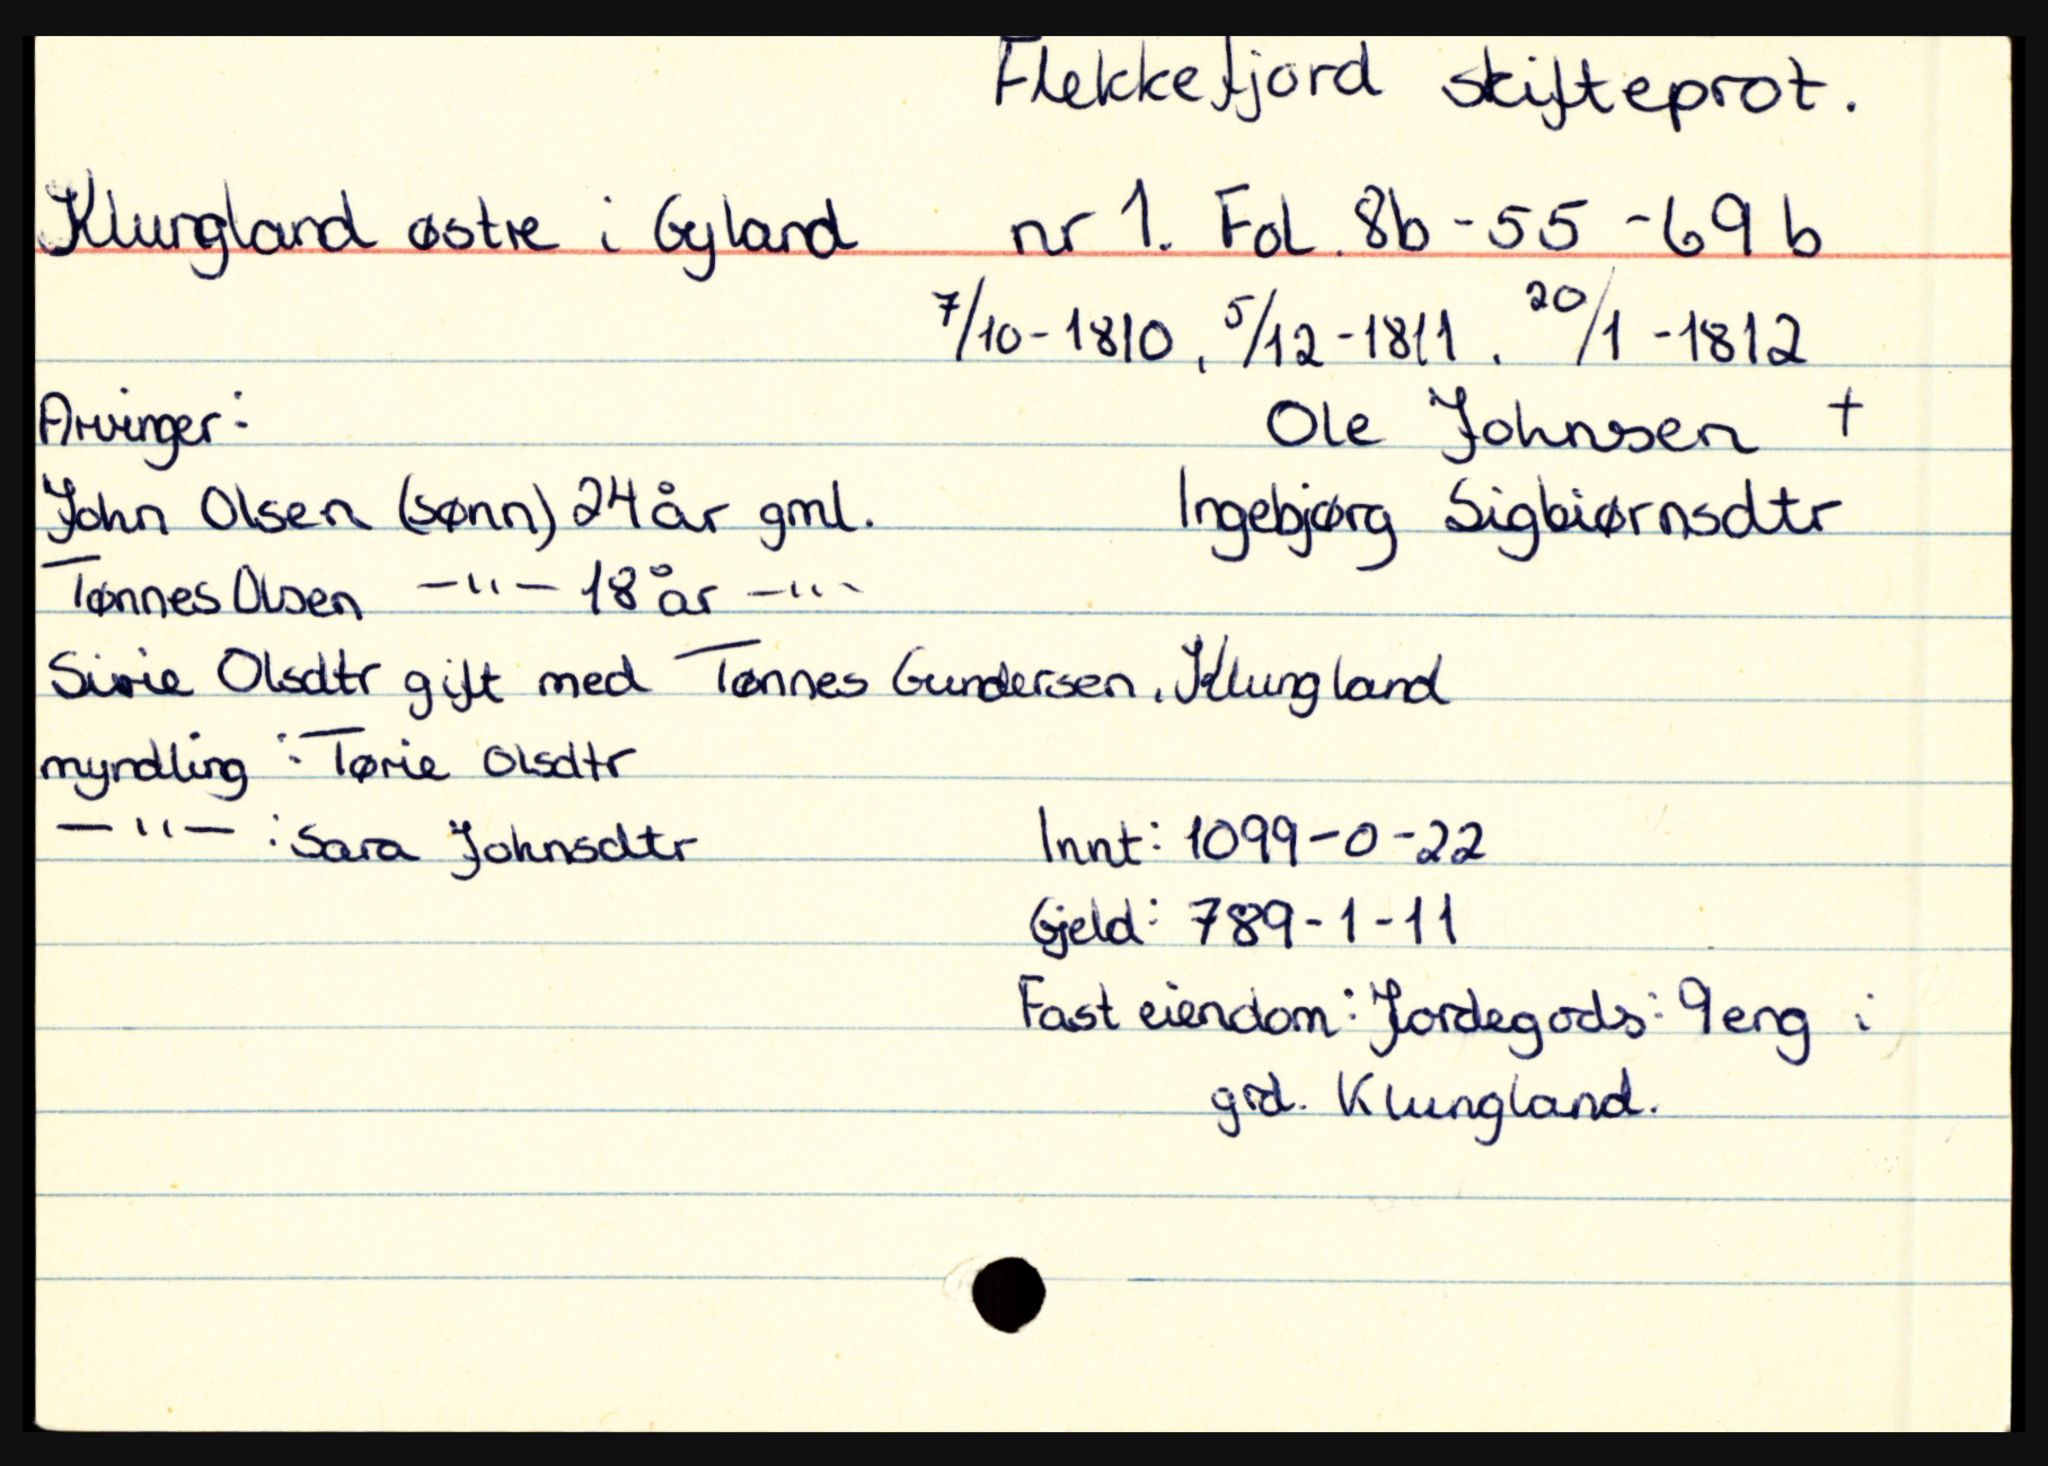 Flekkefjord skifteprot.
Klungland østre i Gyland nr 1. Fol. 8b - 55 - 69 b
7/10 - 1810, 5/12 - 1811. 20/1 - 1812
Arvinger: Ole Johnsen †
John Olsen (sønn) 24 år gml. Ingebjørg Sigbiørnsdtr
Tønnes Olsen —"— 18 år —"-
Sirie Olsdtr gift med Tønnes Gundersen, Klungland
myndling: Tørie Olsdtr
—"— : Sara Johnsdtr Innt: 1099 - 0 - 22
Gjeld: 789 - 1 - 11
Fast eiendom: Jordegods: 9 eng i
grd. Klungland.